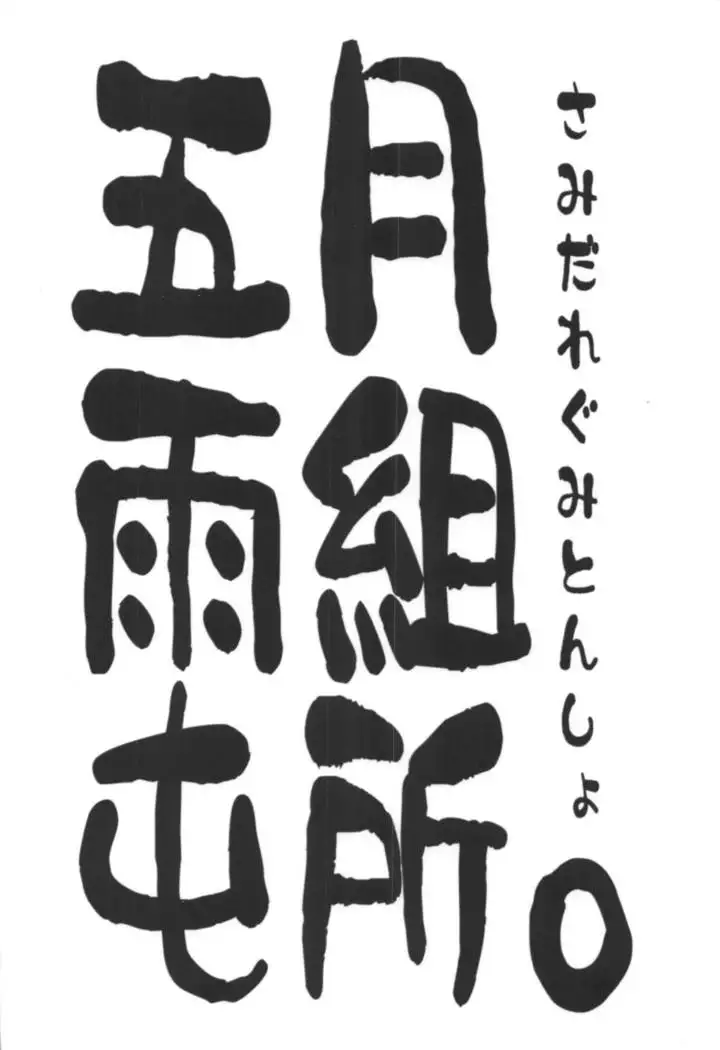 五月
雨組
屯所
さみだれぐみとんしょ。